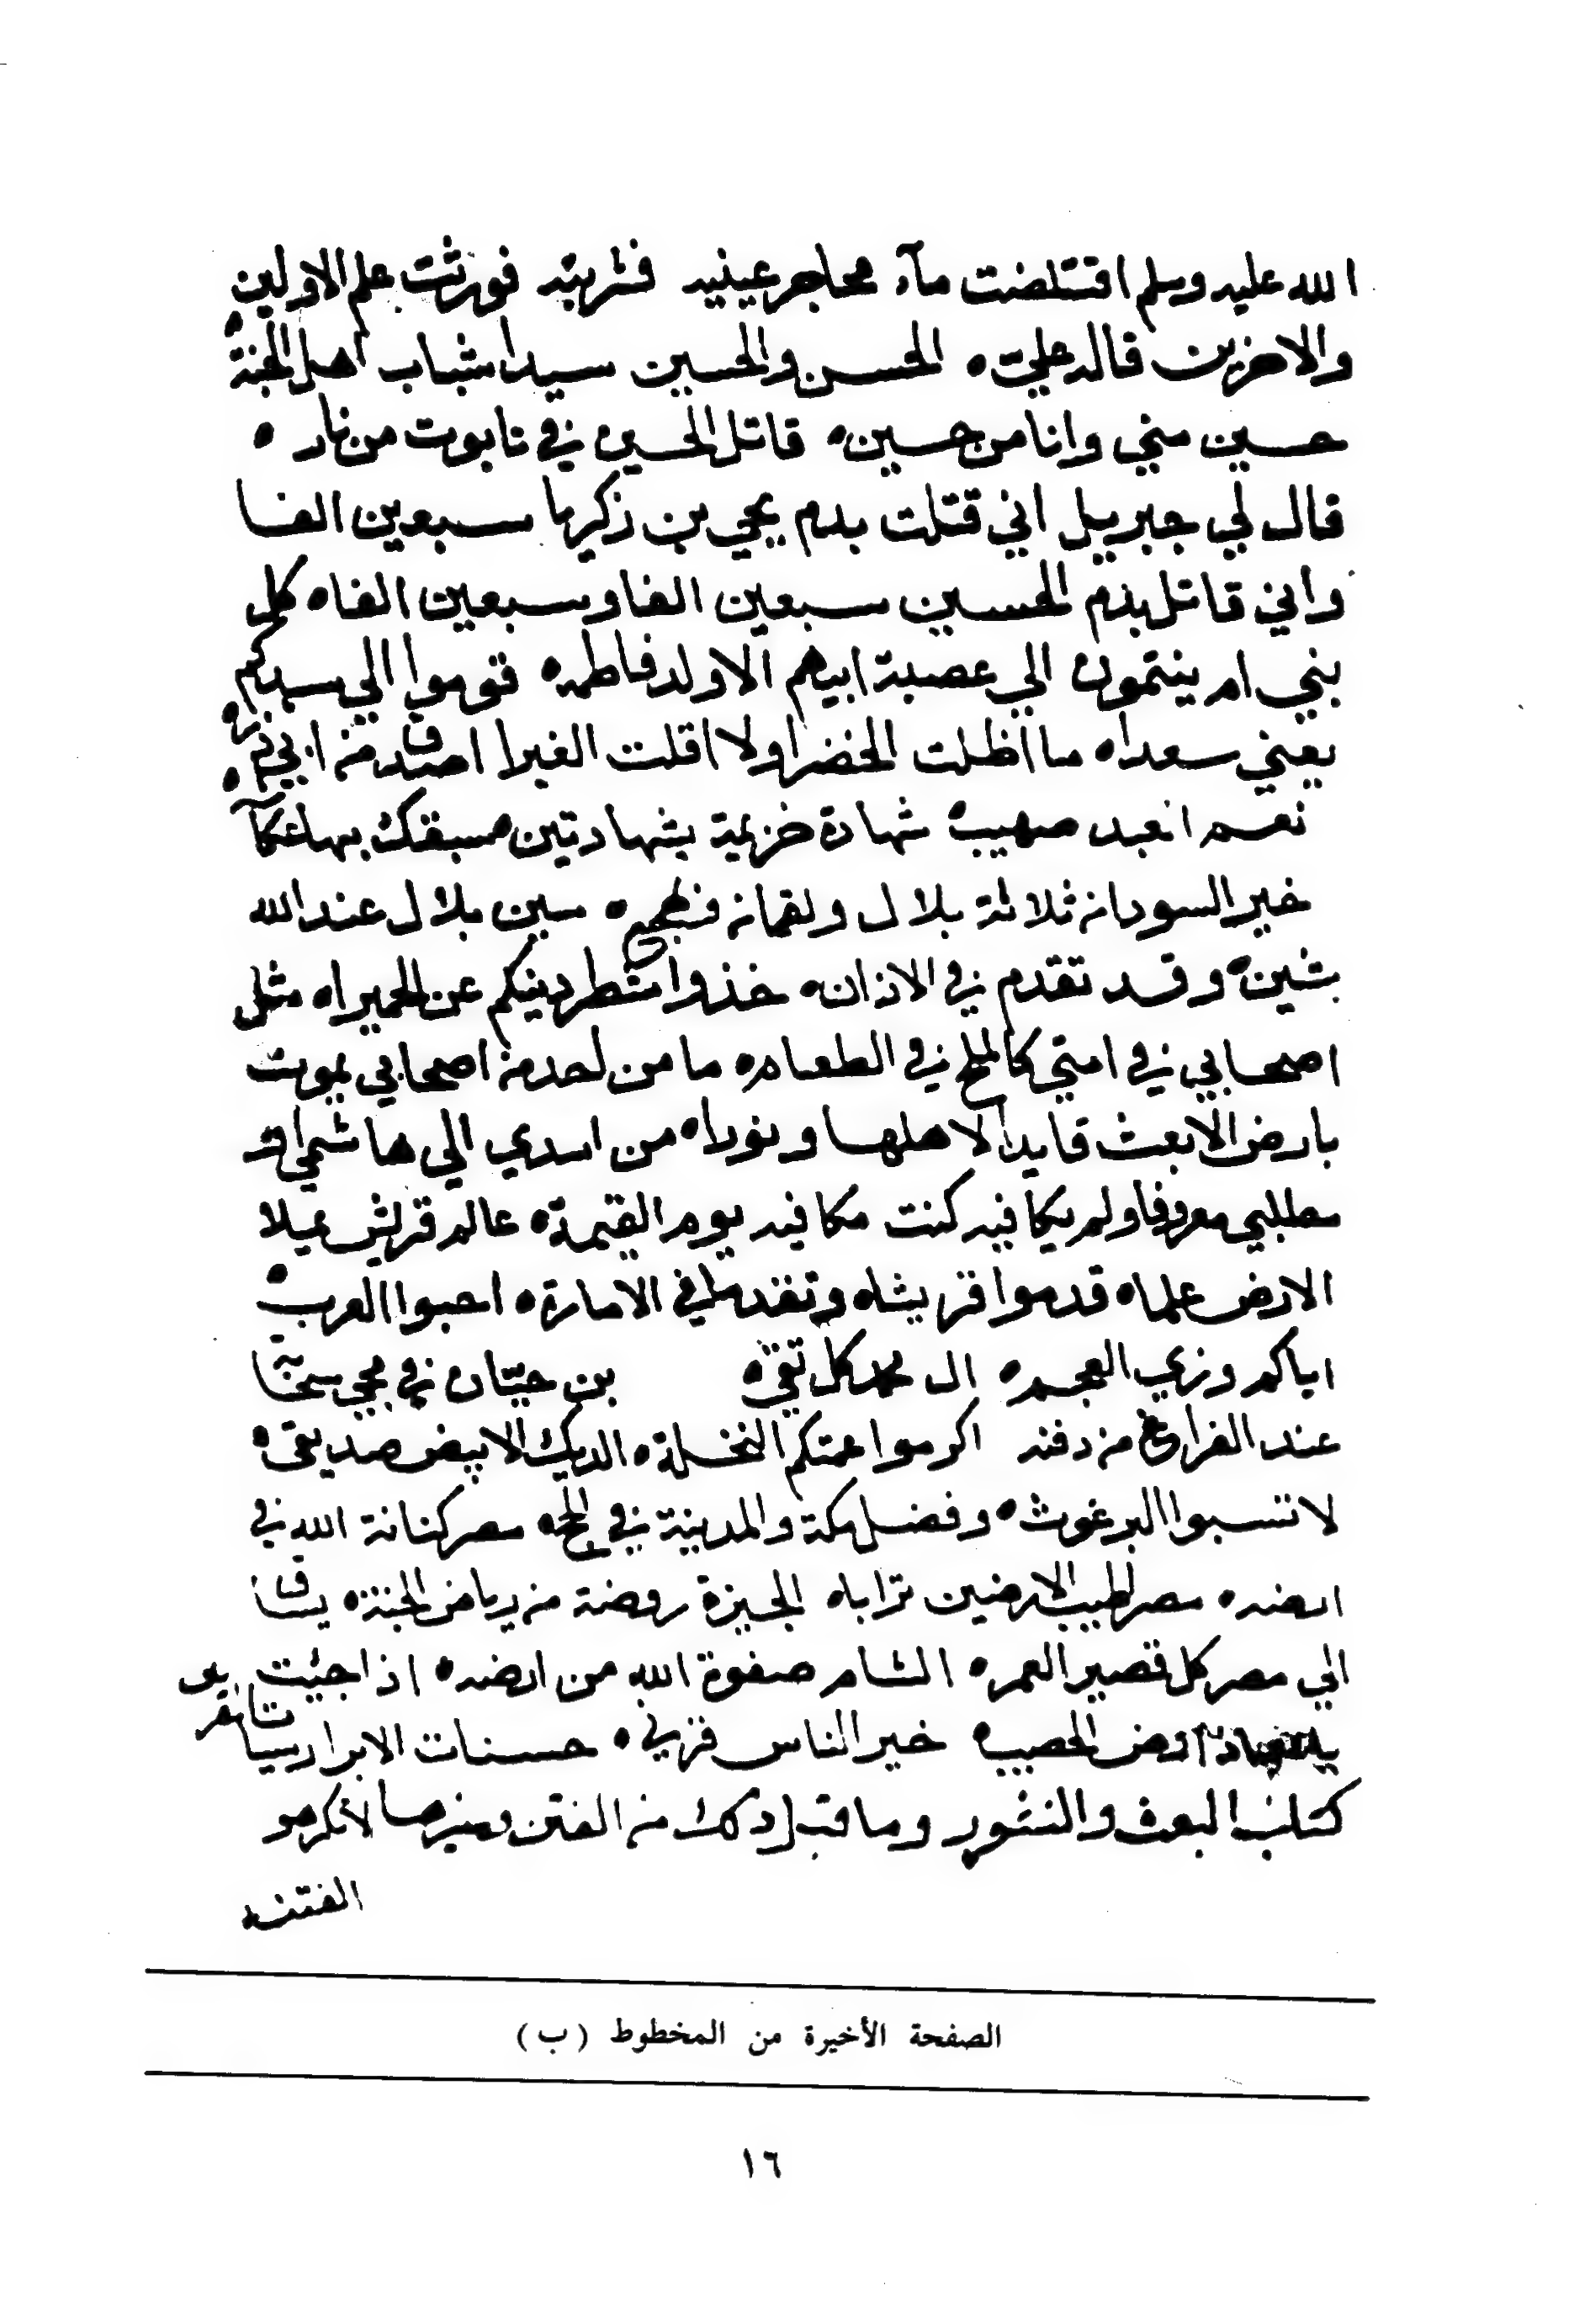 الله عليه وسلم اقتلصت مآء محاجر عينيه فشربته فورثت علم الاولين
والاخرين قاله علي ه الحسن والحسين سيدا شباب اهل الجنة ه
حسين مني وانا من حسين ه قاتل الحسين في تابوت من نار ه
قال لي جبريل اني قتلت بدم يحي بن زكريا سبعين الفا
واني قاتل بدم الحسين سبعين الفا وسبعين الفا ه كل
بني ام ينتمون الي عصبة ابيهم الا ولد فاطمه ه قوموا الي سيدكم
يعني سعدا ه ما اظلت الخضرا ولا اقلت الغبرا اصدق من ابي ذر ه
نعم العبد صهيب ه شهادة خزيمة بشهادتين سبقك بها عكاشة
خير السودان ثلاثة بلال ولقمان ومهجع ه سين بلال عند الله
شين ه وقد تقدم في الاذان ه خذوا شطر دينكم عن الحميرا ه مثل
اصحابي في امتي كالملح في الطعام ه ما من احد من اصحابي يموت
بارض الا بعث قايدا لاهلها ونورا ه من اسدي الي هاشمي او
مطلبي معروفا ولم يكافيه كنت مكافيه يوم القيمة ه عالم قريش يملا
الارض علما ه قدموا قريشا ه وتقدم في الامارة ه احبوا العرب ه
اياكم وزي العجم ه ال محمد كل تقي ه بن حيان في مجي
عند الفراغ من دفنه اكرموا عمتكم النخلة ه الديك الابيض صديقي ه
لا تسبوا البرغوث ه وفضل مكة والمدينة في الحج ه مصر كنانة الله في
ارضه ه مصر اطيب الارضين ترابا ه الجيزة روضة من رياض الجنة ه يساق
الي مصر كل قصير العمر ه الشام صفوة الله من ارضه ه اذا جيت
ارض الحصيب ه خير الناس قرني ه حسنات الابرار سيات
كتاب البعث والنشور وما قبل ذلك من الفتن وغيرها لا تكرهو
الفتنه
الصفحة الأخيرة من المخطوط (ب)
١٦